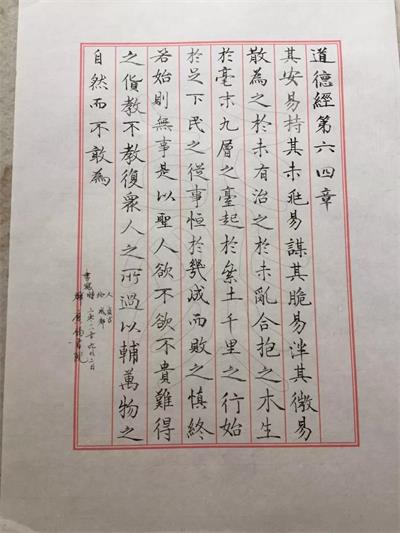 道德經第六四章
其安易持其未兆易謀其脆易泮其微易
散為之於未有治之於未亂合抱之木生
於毫末九層之臺起於絫土千里之行始
於足下民之從事恒於幾成而敗之慎終
若始則無事是以聖人欲不欲不貴難得
之貨教不教復衆人之所過以輔萬物之
自然而不敢為